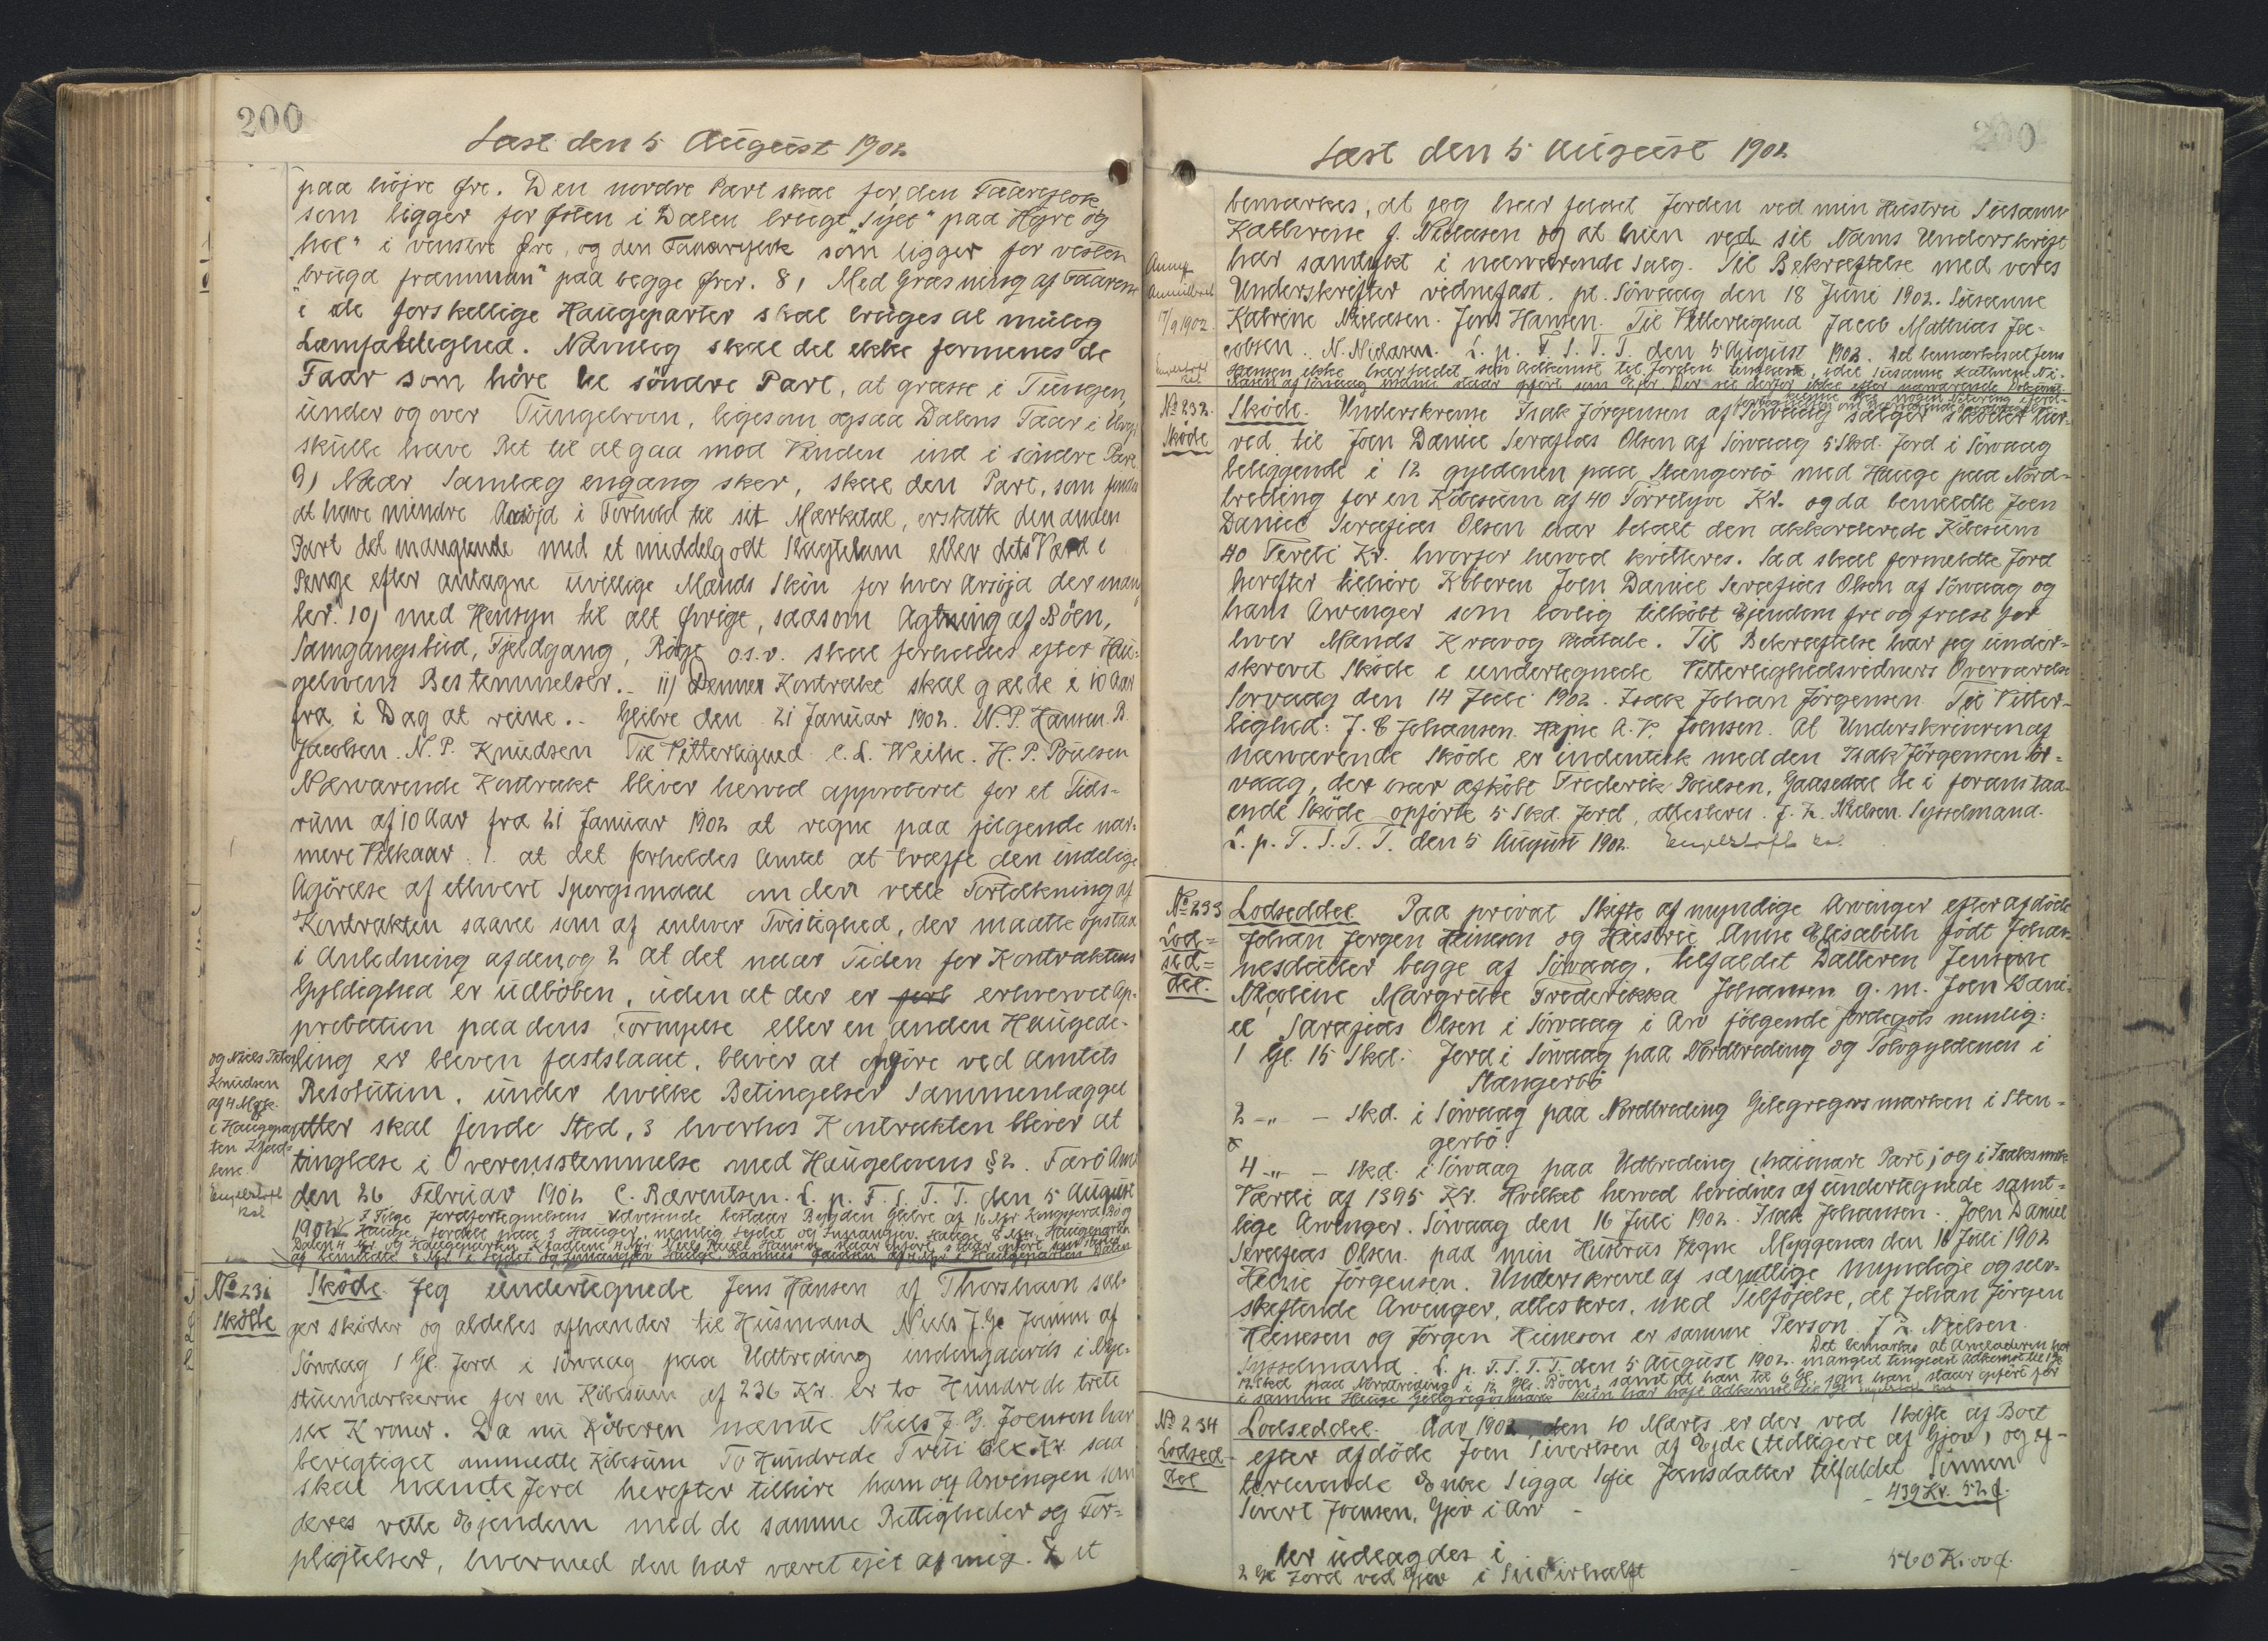 200
Læst den 5 August 1902
paa höjre Øre. Den nordre Part skal for den Faareflok,
som ligger for Østen i Dalen bruge "Syll" paa Høyre og
"hol" i venstre Øre, og den Faareflok som ligger for vesten
"bruga framman" paa begge Ører. 8, Med Græsning af Faarene
i de forskellige Haugeparter skal bruges al mulig
Læmfældighed. Navnlig skal det ikke formenes de
Faar som höre til söndre Part, at græsse i Tungen,
under og over Tungelroen, ligesom ogsaa Dalens Faar i
skulle have Ret til at gaa mod Vinden ind i söndre Part.
9, Naar Samlag engang sker, skal den Part, som findes
at have mindre Aasöjd i Forhold til sit Marketal, erstatte den anden
Part det manglende med et middelgodt Slagtelam eller dets Værd i
Penge efter antagne uvillige Mænds Skön for hver Aasöjd der mang
ler. 10, med Hensyn til alt Øvrigt, saasom Agtning af Böen,
Samgangsbud, Fjeldgang, Røgt o.s.v. skal forholdes efter Hau-
gelovens Bestemmelser. - 11, Denne Kontrakt skal gælde i 10 Aar
fra i Dag at reine. - Glibre den 21 Januar 1902. N. P. Hansen. B.
Jacobsen. N. P. Knudsen Til Vitterlighed C. L. Weihe. H. P. Poulsen
Nærværende Kontrakt bliver herved approberet for et Tids-
rum af 10 Aar fra 21 Januar 1902 at regne paa följgende nær-
mere Vilkaar: 1. at det forbeholdes Amtet at træffe den endelige
Afgörelse af ethvert Spørgsmaal om den rette Fortolkning af
Kontrakten saavel som af enhver Tvistighed, der maatte opstaa
i Anledning af den, og 2 at det naar Tiden for Kontraktens
Gyldighed er udlöben, uden at der er erhvervet Ap-
probation paa dens Fornyelse eller en anden Haugede-
ling er bleven fastslaaet, bliver at afgøre ved Amtets
Resolution, under hvilke Betingelser Sammenlægget
atter skal finde Sted, 3 hvorhos Kontrakten bliver at
tinglæse i Overensstemmelse med Haugelovens § 2. Færö Amt
den 26 Februar 1902 C. Bærentsen. L. p. F. S. T. T. den 5 August
1902.
og Niels Peter
Knudsen
af 4 Mrk.
i Haugepar
ten Kjad-
lene.
Engelstoft
Kst
I Følge Jordfortegnelsens Udvisende bestaar Bygden Glibre af 16 Mrk Kongsjord Bö og
Hauge, fordelt paa 3 Hauger, nemlig Sejdet og Hauge 8 Mrk, Haugeparten
Dalen 4 Mrk og Haugeparten Kjadlene 4 Mrk. Niels Poul Hansen staar opfört som Fæster
No 231
Sködte
Sköde. Jeg undertegnede Jens Hansen af Thorshavn sæl-
ger sköder og aldeles afhænder til Husmand Niels J. G. Joensen af
Sörvaag 1 Gl. Jord i Sörvaag paa Udtreding undengaards i Nye-
stuemarkerne for en Köbesum af 236 Kr. er to Hundrede trete
sex Kroner. Da nu Köberen nemte Niels J. G. Joensen har
berigtiget anmeldte Köbesum To Hundrede Treti sex Kr. saa
skal nemte Jord herefter tilhöre ham og Arvingen som
deres rette Ejendom med de samme Rettigheder og For-
pligtelser, hvormed den har været ejet af mig. Det
200
Læst den 5 August 1902
bemærkes, at jeg har faaet Jorden ved min Hustru Susanne
Kathrine f. Niclasen og at hun ved sit Navns Underskrift
har samtykt i nærværende Salg. Til Bekræftelse med vores
Underskrifter vidnefast. pt. Sörvaag den 18 Juni 1902. Susanne
Katrine Niclasen. Jens Hansen. Til Vitterlighed Jacob Mathias Ja-
cobsen. N. Niclasen. L. p. F. S. T. T. den 5 August 1902. Det bemærkes at Jens
Hansen ikke har faaet sin Adkomst til Jorden tinglæst, idet Susanne Kathrine Ni-
17/9 1902
Engelstoft
Kst
No 232.
Sköde
Sköde. Underskrevne Isak Jörgensen af Sörvaag sælger sköder her-
ved til Joen Daniel Serafias Olsen af Sörvaag 5 Skd. Jord i Sörvaag
beliggende i 12 gyldenen paa Stangerbö med Hauge paa Nord-
treding for en Köbesum af 40 Förretyve Kr. og da bemeldte Joen
Daniel Serafias Olsen har betalt den akkorderede Köbesum
40 Företi Kr. hvorfor herved kvitteres. Saa skal formeldte Jord
herefter tilhöre Köberen Joen Daniel Serafias Olsen af Sörvaag og
hans Arvinger som lovlig tilköbt Ejendom fri og frelst for
hver Mands Krav og Paatale. Til Bekræftelse har jeg under-
skrevet Sköde i undertegnede Vitterlighedsvidners Overværelse
Sörvaag den 14 Juli 1902. Isak Johan Jörgensen Til Vitter-
lighed: J. E Johansen. Hejne A. V. Joensen. At Underskriveren af
nærværende Sköde er indentisk med den Isak Jörgensen Sör-
vaag, der har afköbt Frederik Poulsen, Gaasedal de i foranstaa-
ende Sköde opførte 5 Skd. Jord, attesteres. J. Z. Nielsen. Sysselmand.
L. p. F. S. T. T. den 5 August 1902. Engelstoft Kst.
No 233
Lod-
sed-
del.
Lodseddel. Paa privat Skifte af myndige Arvinger efter afdöde
Johan Jørgen Heinesen og Hustru Anne Elisabeth födt Johan-
nesdatter begge af Sörvaag, tilfaldet Datteren Jensine
Nicoline Margrethe Frederikka Johansen g. m. Joen Dani-
el Sarafias Olsen i Sörvaag i Arv fölgende Jordegods nemlig:
1 Gl. 15 Skd. Jord i Sörvaag paa Nordtreding og Tolvgyldenen i
Stangerbö
2 - " - Skd. i Sörvaag paa Nordtreding Gilegregorsmarken i Stan-
gerbö.
4 - " - Skd. i Sörvaag paa Udtreding, og i Isaksmrk
Værdi af 1395 Kr. Hvilket herved bevidnes af undertegnede samt-
lige Arvinger. Sörvaag den 16 Juli 1902. Isak Johansen. Joen Daniel
Serafias Olsen. paa min Hustrus Vegne Myggenæs den 16 Juli 1902
Heine Jørgensen. Underskrevet af samtlige myndige og selv-
skiftende Arvinger, attesteres, med Tilföjelse, at Johan Jörgen
Heinesen og Jørgen Heinesen er samme Person. J Z. Nielsen.
Sysselmand. L. p. F. S. T. T. den 5 August 1902. Det bemærkes at Arveladeren har
manglet tinglæst Adkomst til 1 Gl
12 Skd paa Nordtreding i 12 Gl. Böen, samt at han til 6 Gl. som han staar opfört for
No 234
Lodsed-
del
Lodseddel. Aar 1902 den 10 Marts er der ved Skifte af Boet
efter afdöde Joen Sivertsen af Ejde (tidligere af Gjov) og ef-
terlevende Enke Sigga Sofie Joensdatter tilfaldet Sönnen
Sivert Joensen, Gjov i Arv - - 439 Kr. 52 Ø.
her udlagdes i
2 Gl Jord ved Gjov i Sudurhalft - 560 Kr. 00 Ø.